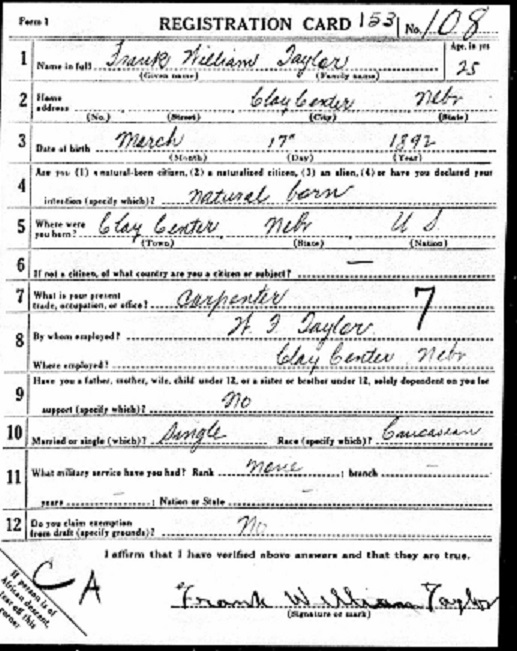 Form 1 REGISTRATION CARD 153 No. 108
1 Name in full Frank William Taylor Age, in yrs
(Given name) (Family name) 25
2 Home address Clay Center Nebr
(No.) (Street) (City) (State)
3 Date of birth March 17" 1892
(Month) (Day) (Year)
4 Are you (1) a natural-born citizen, (2) a naturalized citizen, (3) an alien, (4) or have you declared your
intention (specify which)? natural born
5 Where were you born? Clay Center Nebr U S
(Town) (State) (Nation)
6 If not a citizen, of what country are you a citizen or subject? —
7 What is your present trade, occupation, or office? Carpenter 7
8 By whom employed? Taylor
Where employed? Clay Center, Nebr
9 Have you a father, mother, wife, child under 12, or a sister or brother under 12, solely dependent on you for
support (specify which)? no
10 Married or single (which)? Single Race (specify which)? Caucasian
11 What military service have you had? Rank None ; branch —
years — ; Nation or State —
12 Do you claim exemption from draft (specify grounds)? No
I affirm that I have verified above answers and that they are true.
C A
If person is of
African descent,
tear off this
corner
Frank William Taylor
(Signature or mark)